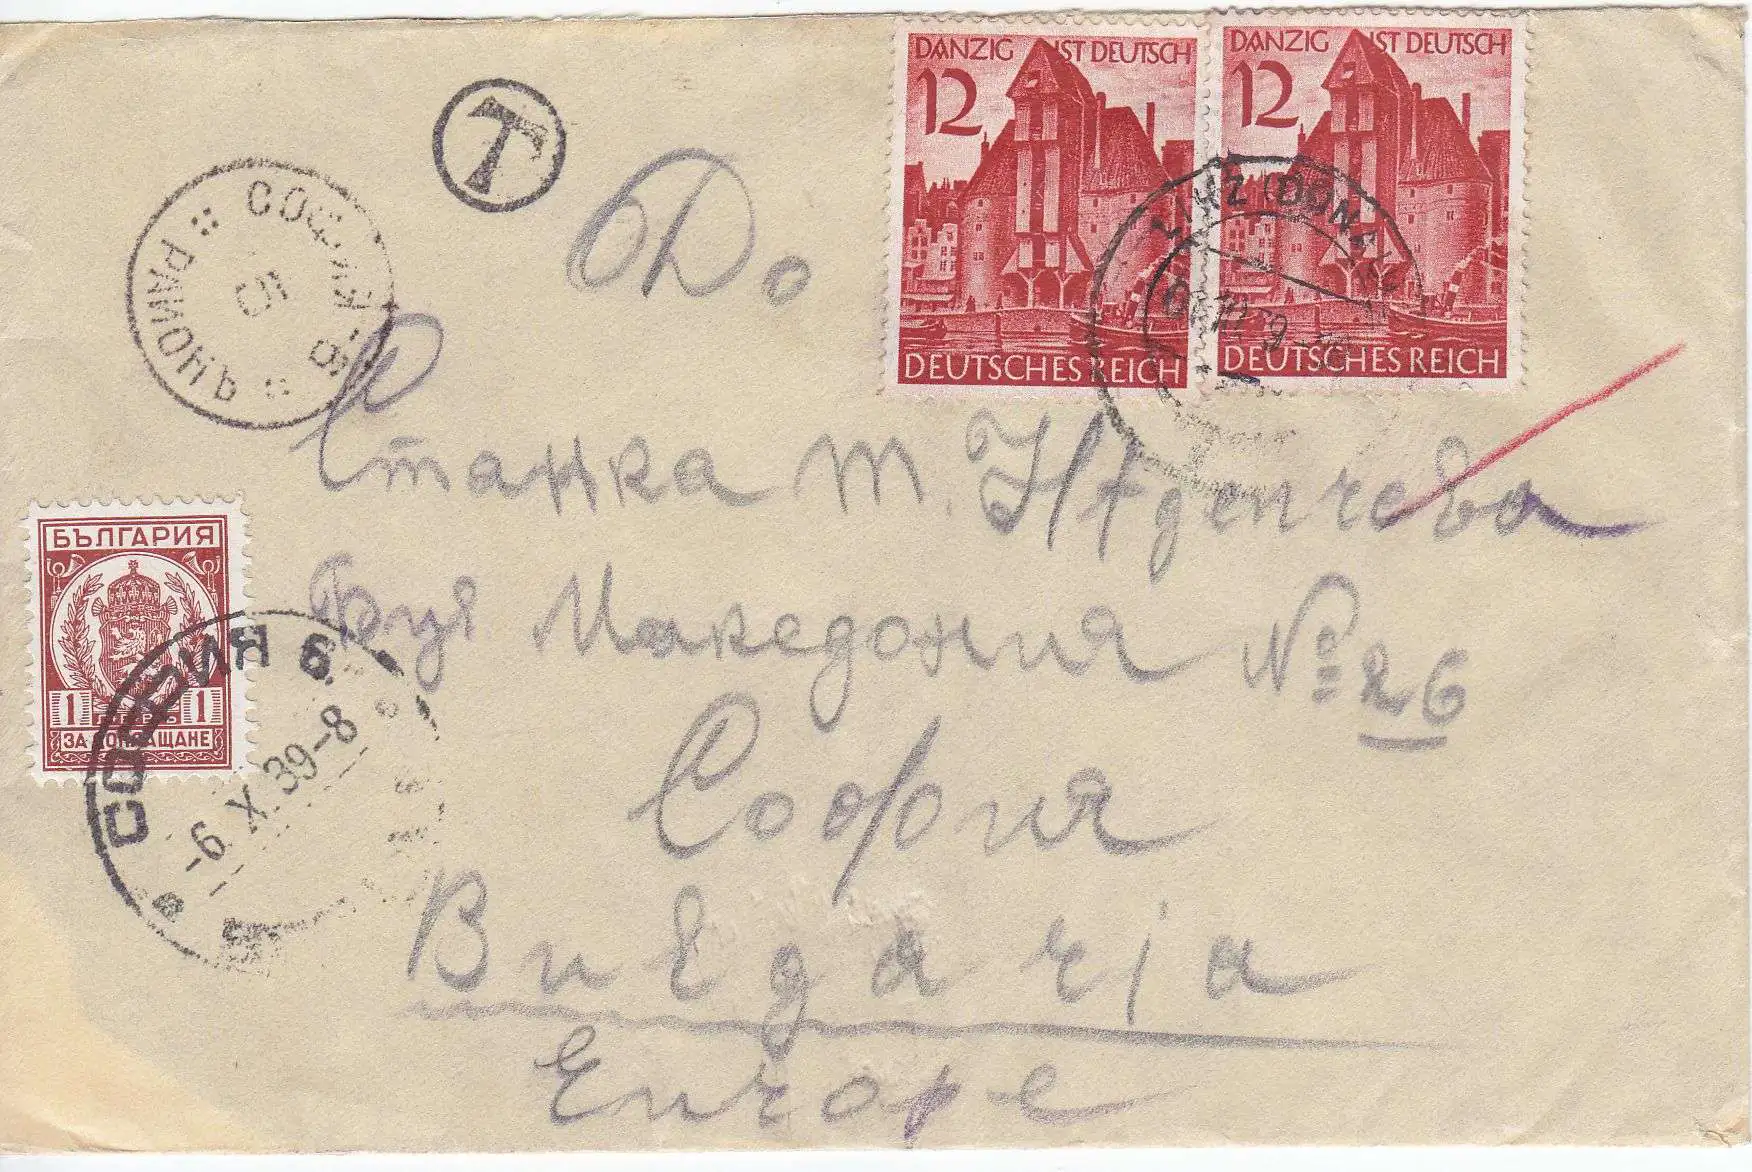 DANZIG IST DEUTSCH
12
DEUTSCHES REICH
DANZIG IST DEUTSCH
12
DEUTSCHES REICH
LINZ (DONAU)
T
СОФИЯ-В
РАЙОНЪ
5
До
Станка Т.
ул Македония № 26
София
Bulgaria
Europe
БЪЛГАРИЯ
1 ЛЕВЪ 1
ЗА ДОПЛАЩАНЕ
СОФИЯ 6
-6 X.39-8